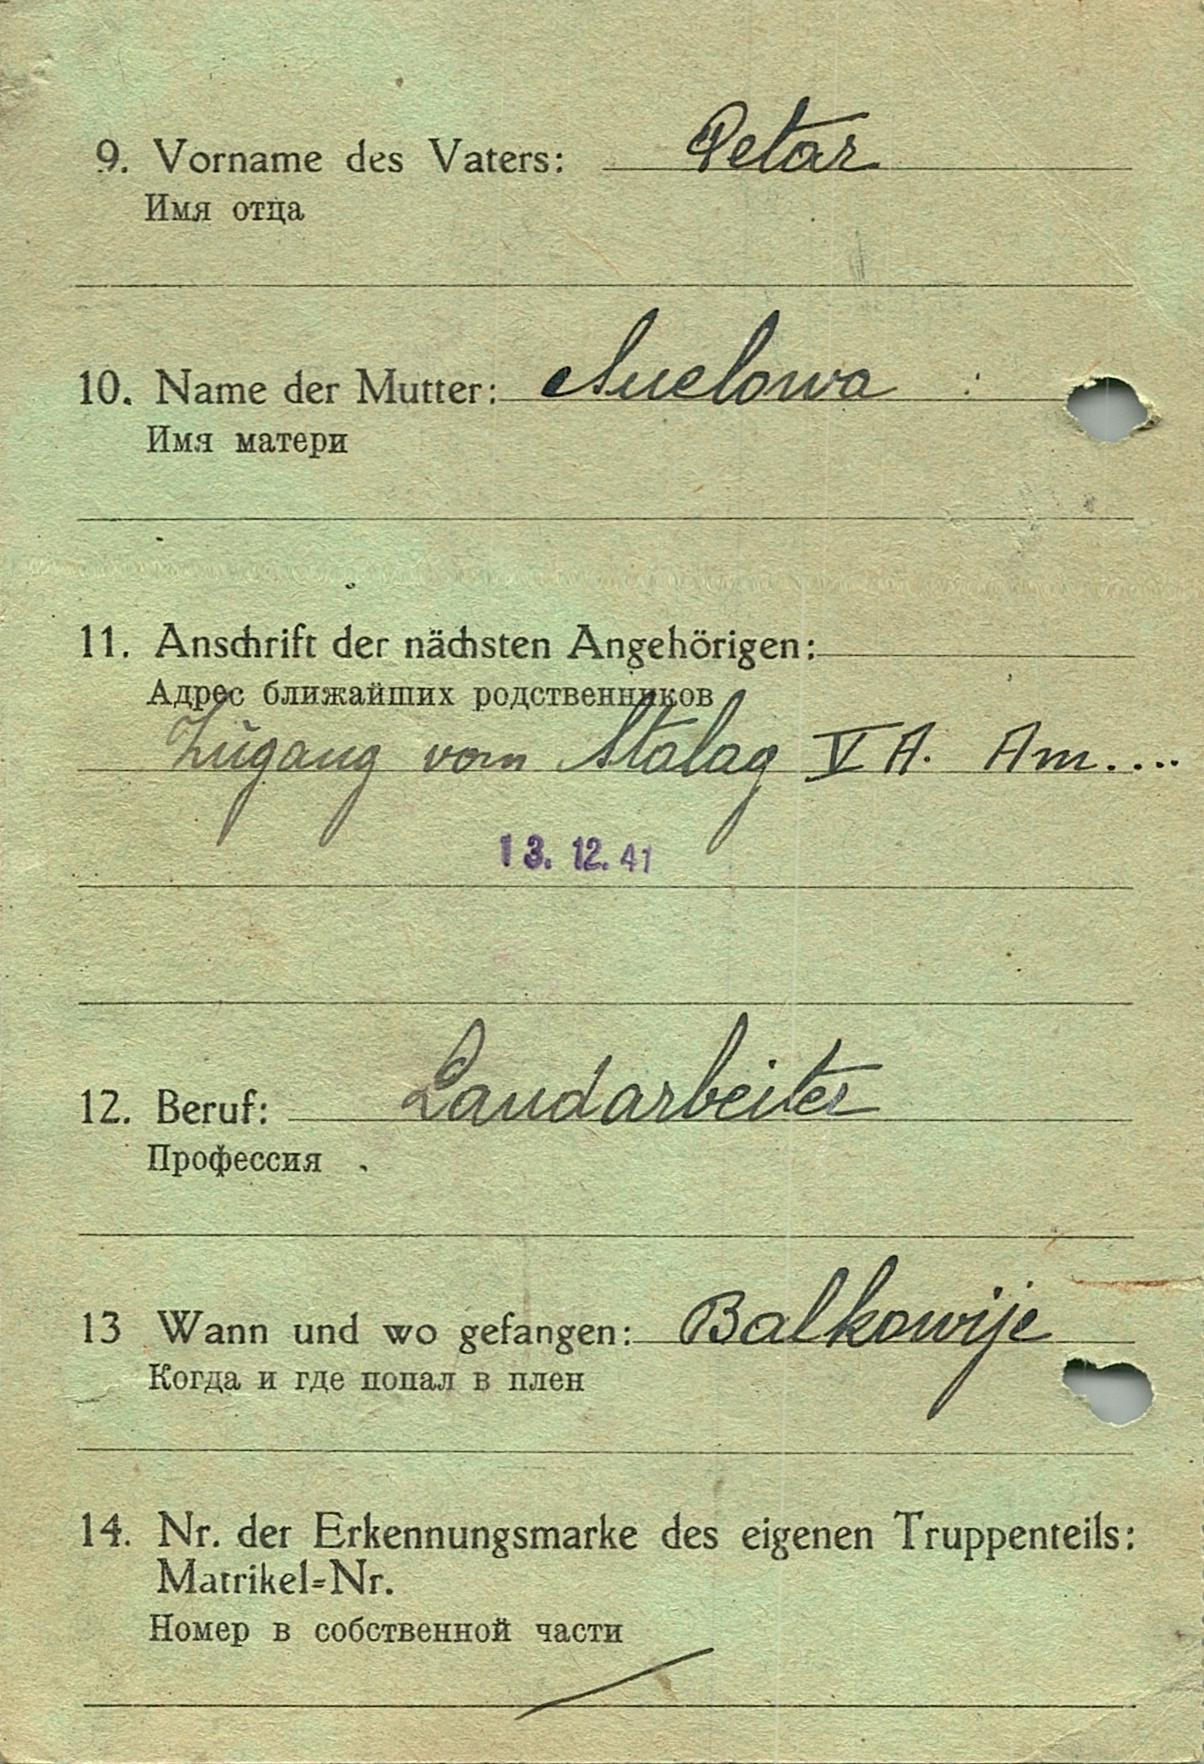 9. Vorname des Vaters: Petar
Имя отца
10. Name der Mutter:
Имя матери
11. Anschrift der nächsten Angehörigen:
Адрес ближайших родственников
Zugang vom Stalag V A. Am....
13. 12. 41
12. Beruf: Landarbeiter
Профессия
13 Wann und wo gefangen: Balkowije
Когда и где попал в плен
14. Nr. der Erkennungsmarke des eigenen Truppenteils:
Matrikel=Nr.
Номер в собственной части